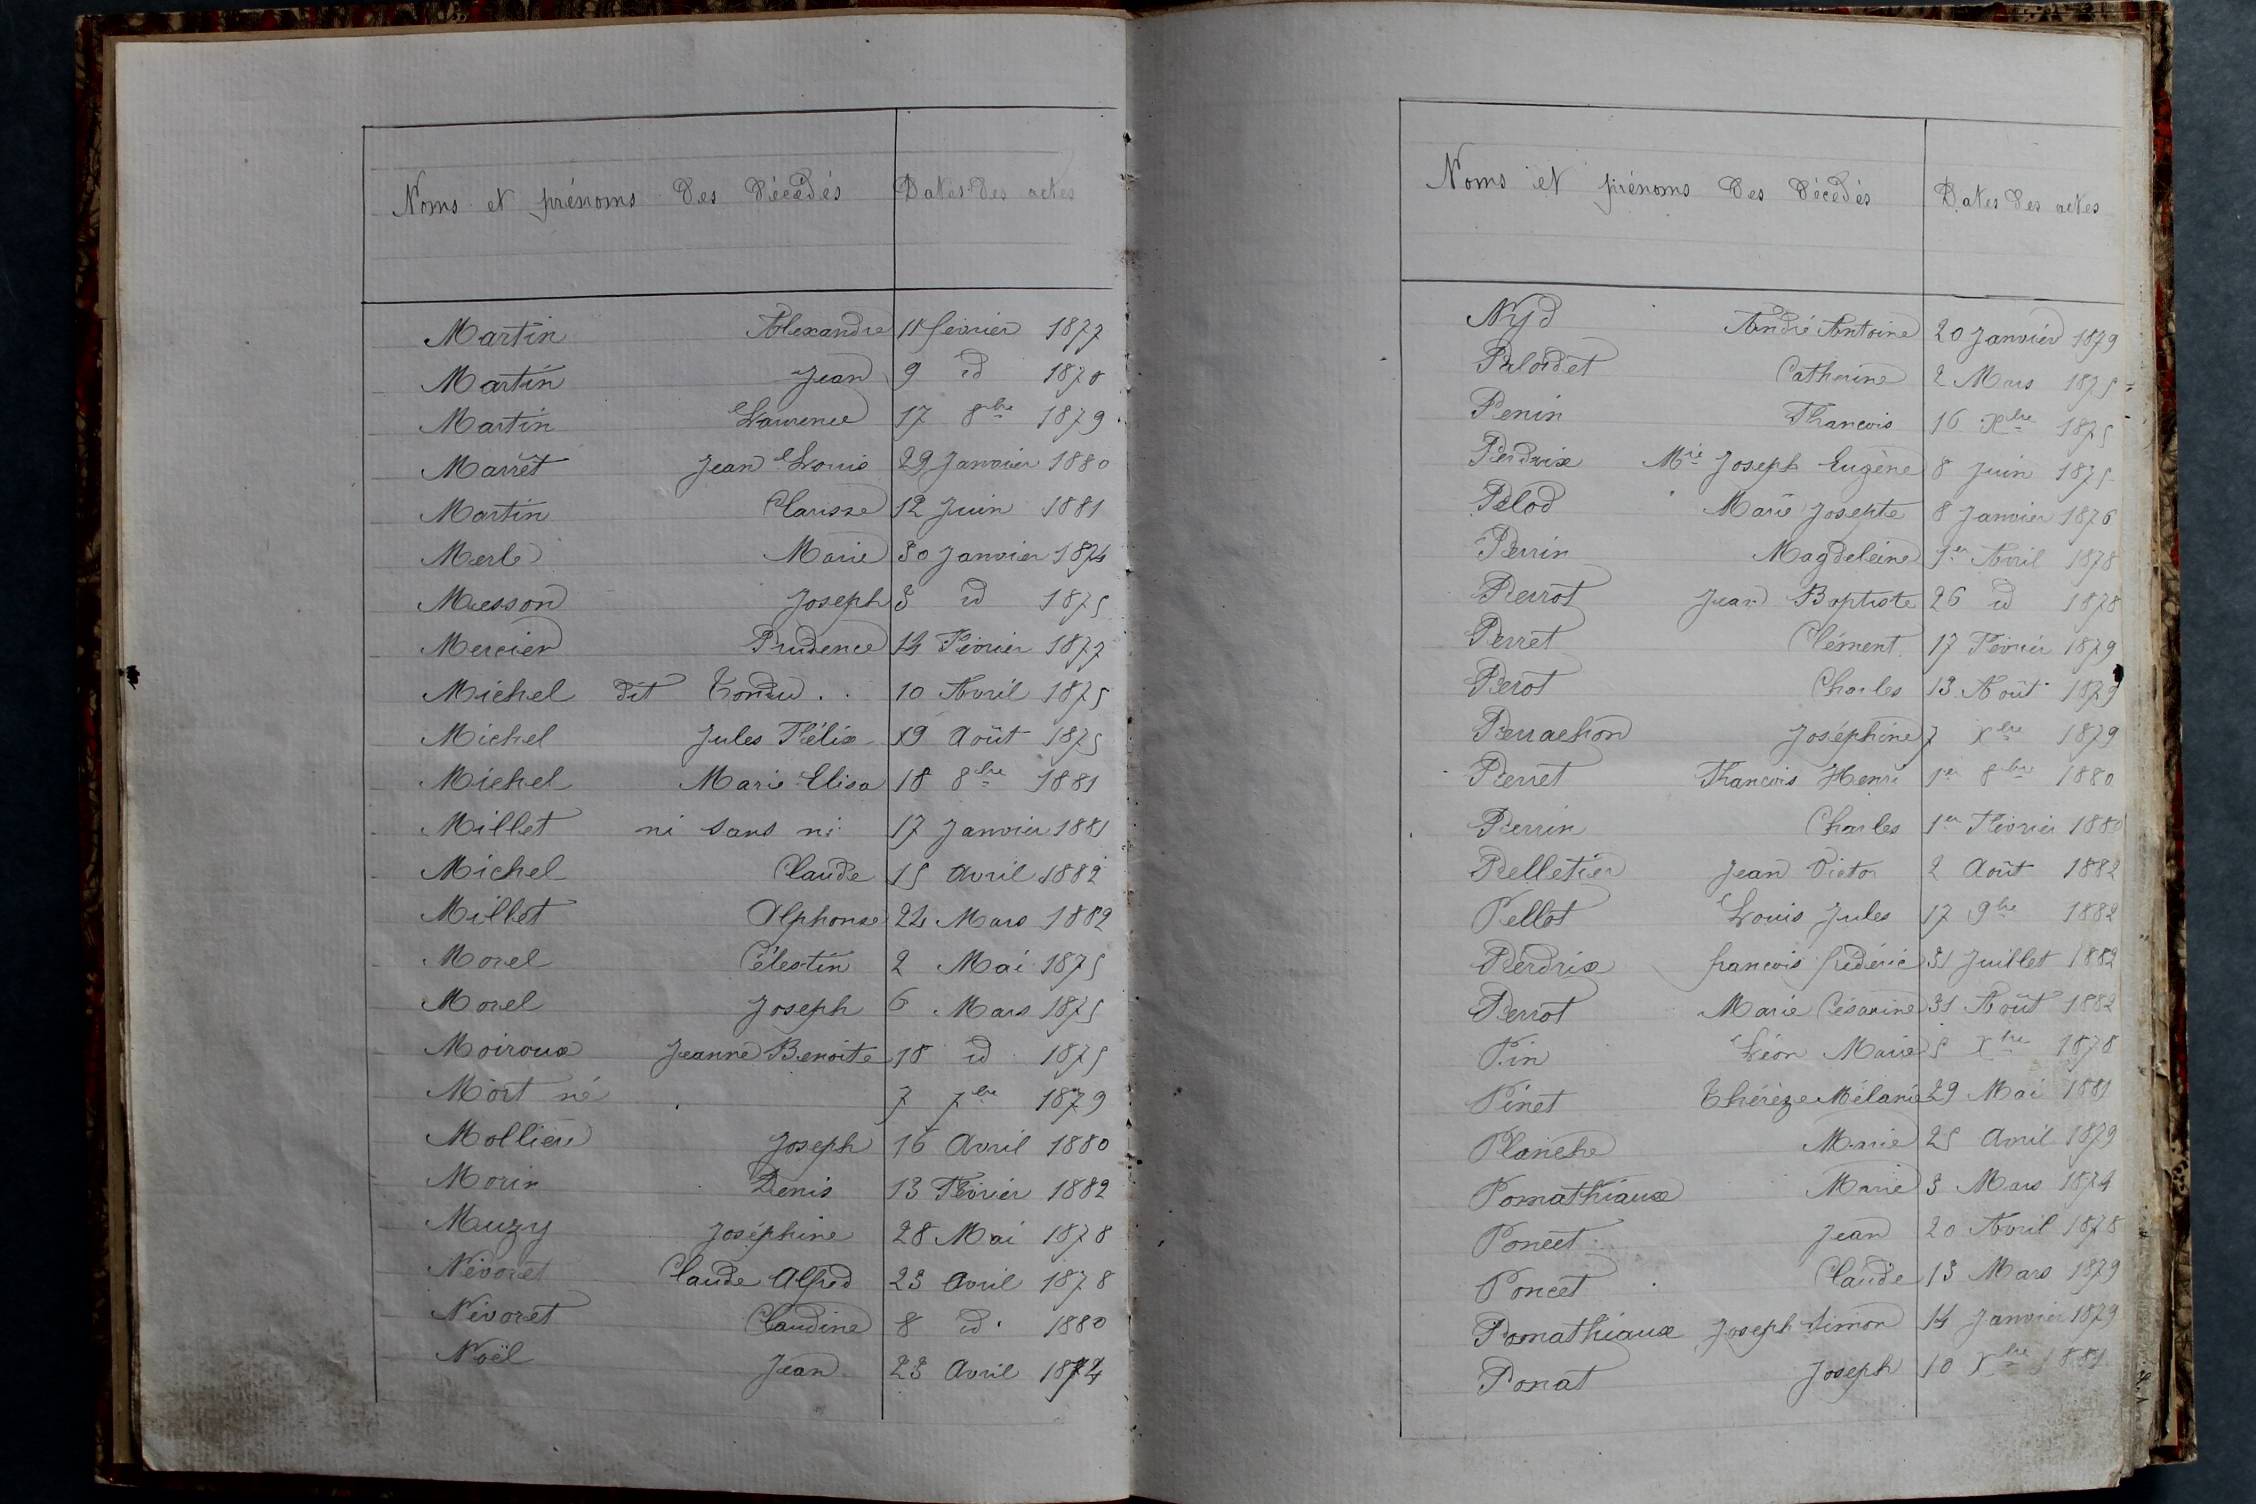 Noms et prénoms des décédés Dates des actes
Martin Alexandre 11 février 1877
Martin Jean 9 id 1878
Martin Laurence 17 8bre 1879
Marret Jean Louis 29 Janvier 1880
Martin Clarisse 12 Juin 1881
Merle Marie 30 Janvier 1874
Messon Joseph 8 id 1875
Mercier Prudence 14 Février 1877
Michel dit Tondu . . 10 Avril 1875
Michel Jules Félix 19 Août 1875
Michel Marie Elisa 18 8bre 1881
Millet ni sans ni 17 Janvier 1881
Michel Claude 15 Avril 1882
Millot Alphonse 24 Mars 1882
Morel Célestin 2 Mai 1875
Morel Joseph 6 Mars 1875
Moiroux Jeanne Benoite 18 id 1875
Mort né 7 7bre 1879
Mollieu Joseph 16 Avril 1880
Morin Denis 13 Février 1882
Muzy Joséphine 28 Mai 1878
Névoret Claude Alfred 23 Avril 1878
Névoret Claudine 8 id. 1880
Noël Jean 23 Avril 1874
Noms et prénoms des décédés Dates des actes
Nyd André Antoine 20 Janvier 1879
Catherine 2 Mars 1875
Penin François 16 Xbre 1875
Perdrix Mie Joseph Eugène 8 Juin 1875
Pelod Marie Josepte 8 Janvier 1876
Perrin Magdeleine 1er Avril 1878
Perrot Jean Baptiste 26 id 1878
Perret Clément 17 Février 1879
Perot Charles 13 Août 1879
Perrachon Joséphine 7 Xbre 1879
Perret François Henri 1er 8bre 1880
Perrin Charles 1er Février 1880
Pelletier Jean Victor 2 Août 1882
Pellot Louis Jules 17 9bre 1882
Perdrix françois frédéric 31 Juillet 1882
Perrot Marie Césarine 31 Août 1882
Pin Léon Marie 5 Xbre 1878
Pinet Thérèze Mélanie 29 Mai 1881
Planche Marie 25 Avril 1879
Pomathiaux Marie 3 Mars 1874
Poncet Jean 20 Avril 1878
Poncet Claude 13 Mars 1879
Pomathiaux Joseph Simon 14 Janvier 1879
Ponat Joseph 10 Xbre 1881